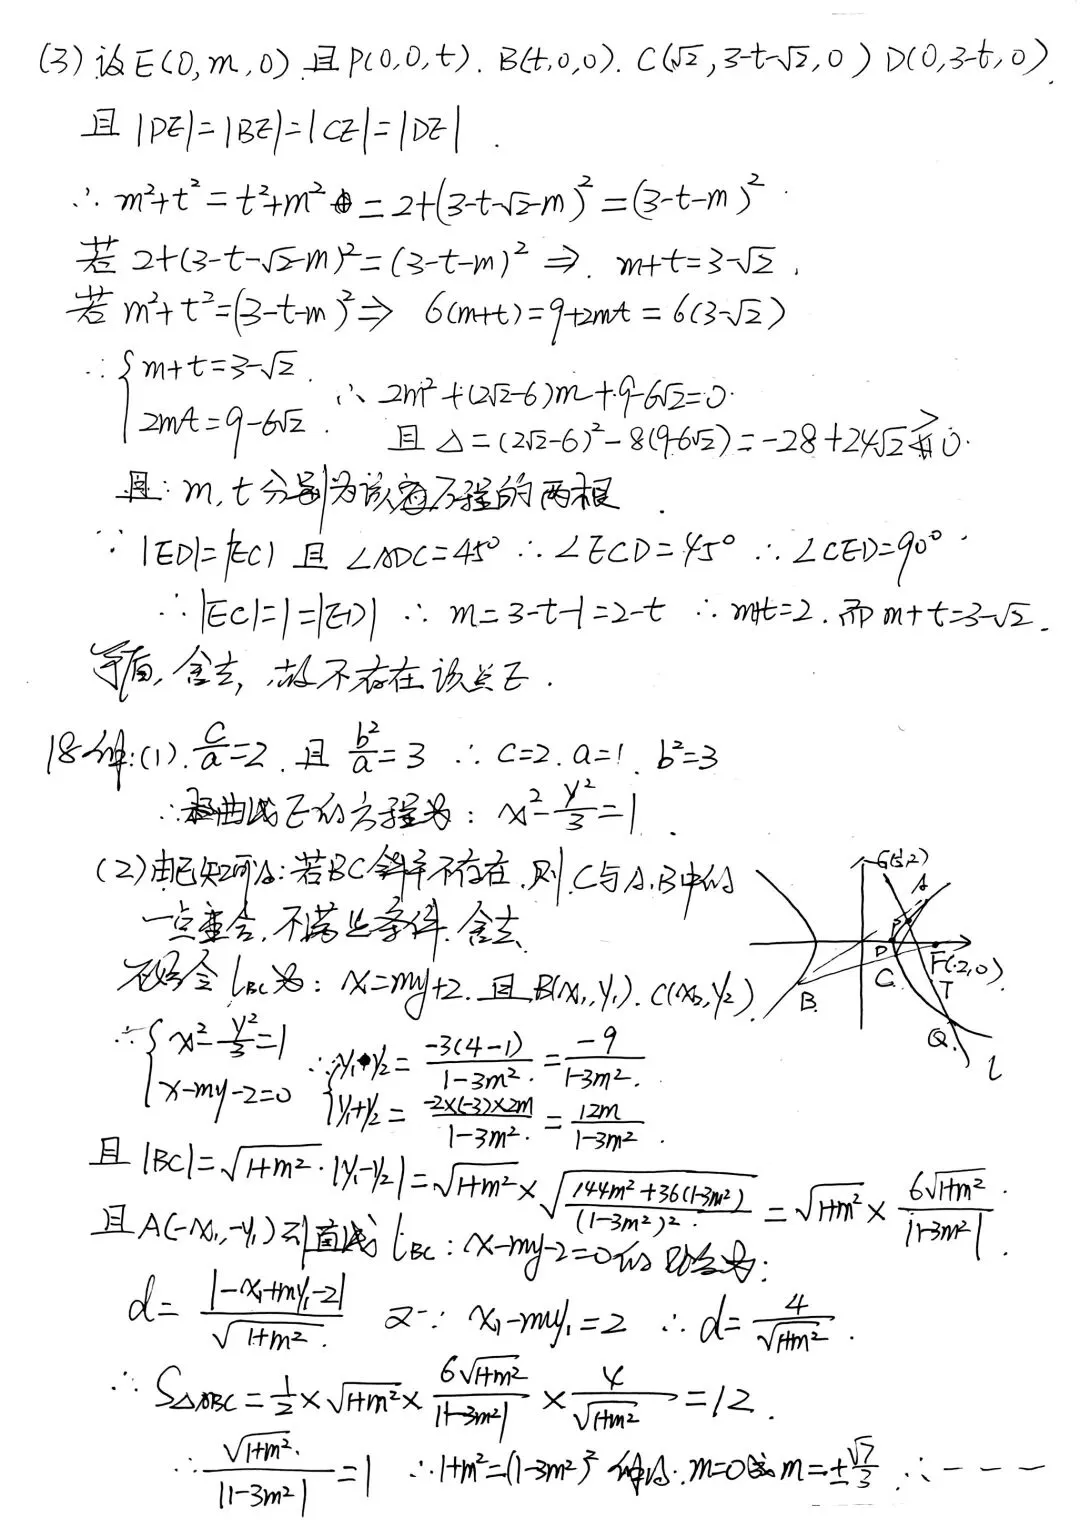 (3) 设E(0,m,0) 且P(0,0,t). B(t,0,0). C(√2,3-t-√2,0) D(0,3-t,0).
且|PE|=|BE|=|CE|=|DE|.
∴ m²+t²=t²+m²=2+(3-t-√2-m)²=(3-t-m)².
若 2+(3-t-√2-m)²=(3-t-m)² ⇒. m+t=3-√2.
若 m²+t²=(3-t-m)² ⇒ 6(m+t)=9+2mt=6(3-√2)
∴ { m+t=3-√2. 2mt=9-6√2. ∴ 2m²+(2√2-6)m+9-6√2=0.
且 Δ=(2√2-6)²-8(9-6√2)=-28+24√2>0.
且: m, t分别为该方程的两根.
∵ |ED|=|EC| 且 ∠ADC=45° ∴∠ECD=45° ∴∠CED=90°.
∴|EC|=1=|ED| ∴ m=3-t-1=2-t ∴m+t=2. 而m+t=3-√2.
矛盾, 舍去, 故不存在该点E.
18解:(1). c/a=2. 且 b²/a=3 ∴ c=2. a=1. b²=3
∴双曲线E的方程为: x²-y²/3=1.
(2)由已知可得:若BC斜率不存在,则C与A,B中的
一点重合,不满足条件,舍去.
不妨令 l_BC为: x=my+2. 且B(x₁,y₁). C(x₂,y₂).
∴ { x²-y²/3=1 x-my-2=0 ∴ { y₁•y₂=-3(4-1)/(1-3m²)=-9/(1-3m²).
y₁+y₂=-2×(-3)×2m/(1-3m²)=12m/(1-3m²).
且|BC|=√(1+m²)·|y₁-y₂|=√(1+m²)×√((144m²+36(1-3m²))/(1-3m²)²)=√(1+m²)×6√(1+m²)/|1-3m²|.
且A(-x₁,-y₁)到直线l_BC: x-my-2=0的距离为:
d=|-x₁+my₁-2|/√(1+m²). 又∵ x₁-my₁=2 ∴d=4/√(1+m²).
∴ S△ABC=1/2×√(1+m²)×6√(1+m²)/|1-3m²|×4/√(1+m²)=12.
∴√(1+m²)/|1-3m²|=1 ∴1+m²=(1-3m²)² 解得:m=0或m=±√7/3. ∴---
A
P
D
F(2,0).
B
C
T
Q.
l